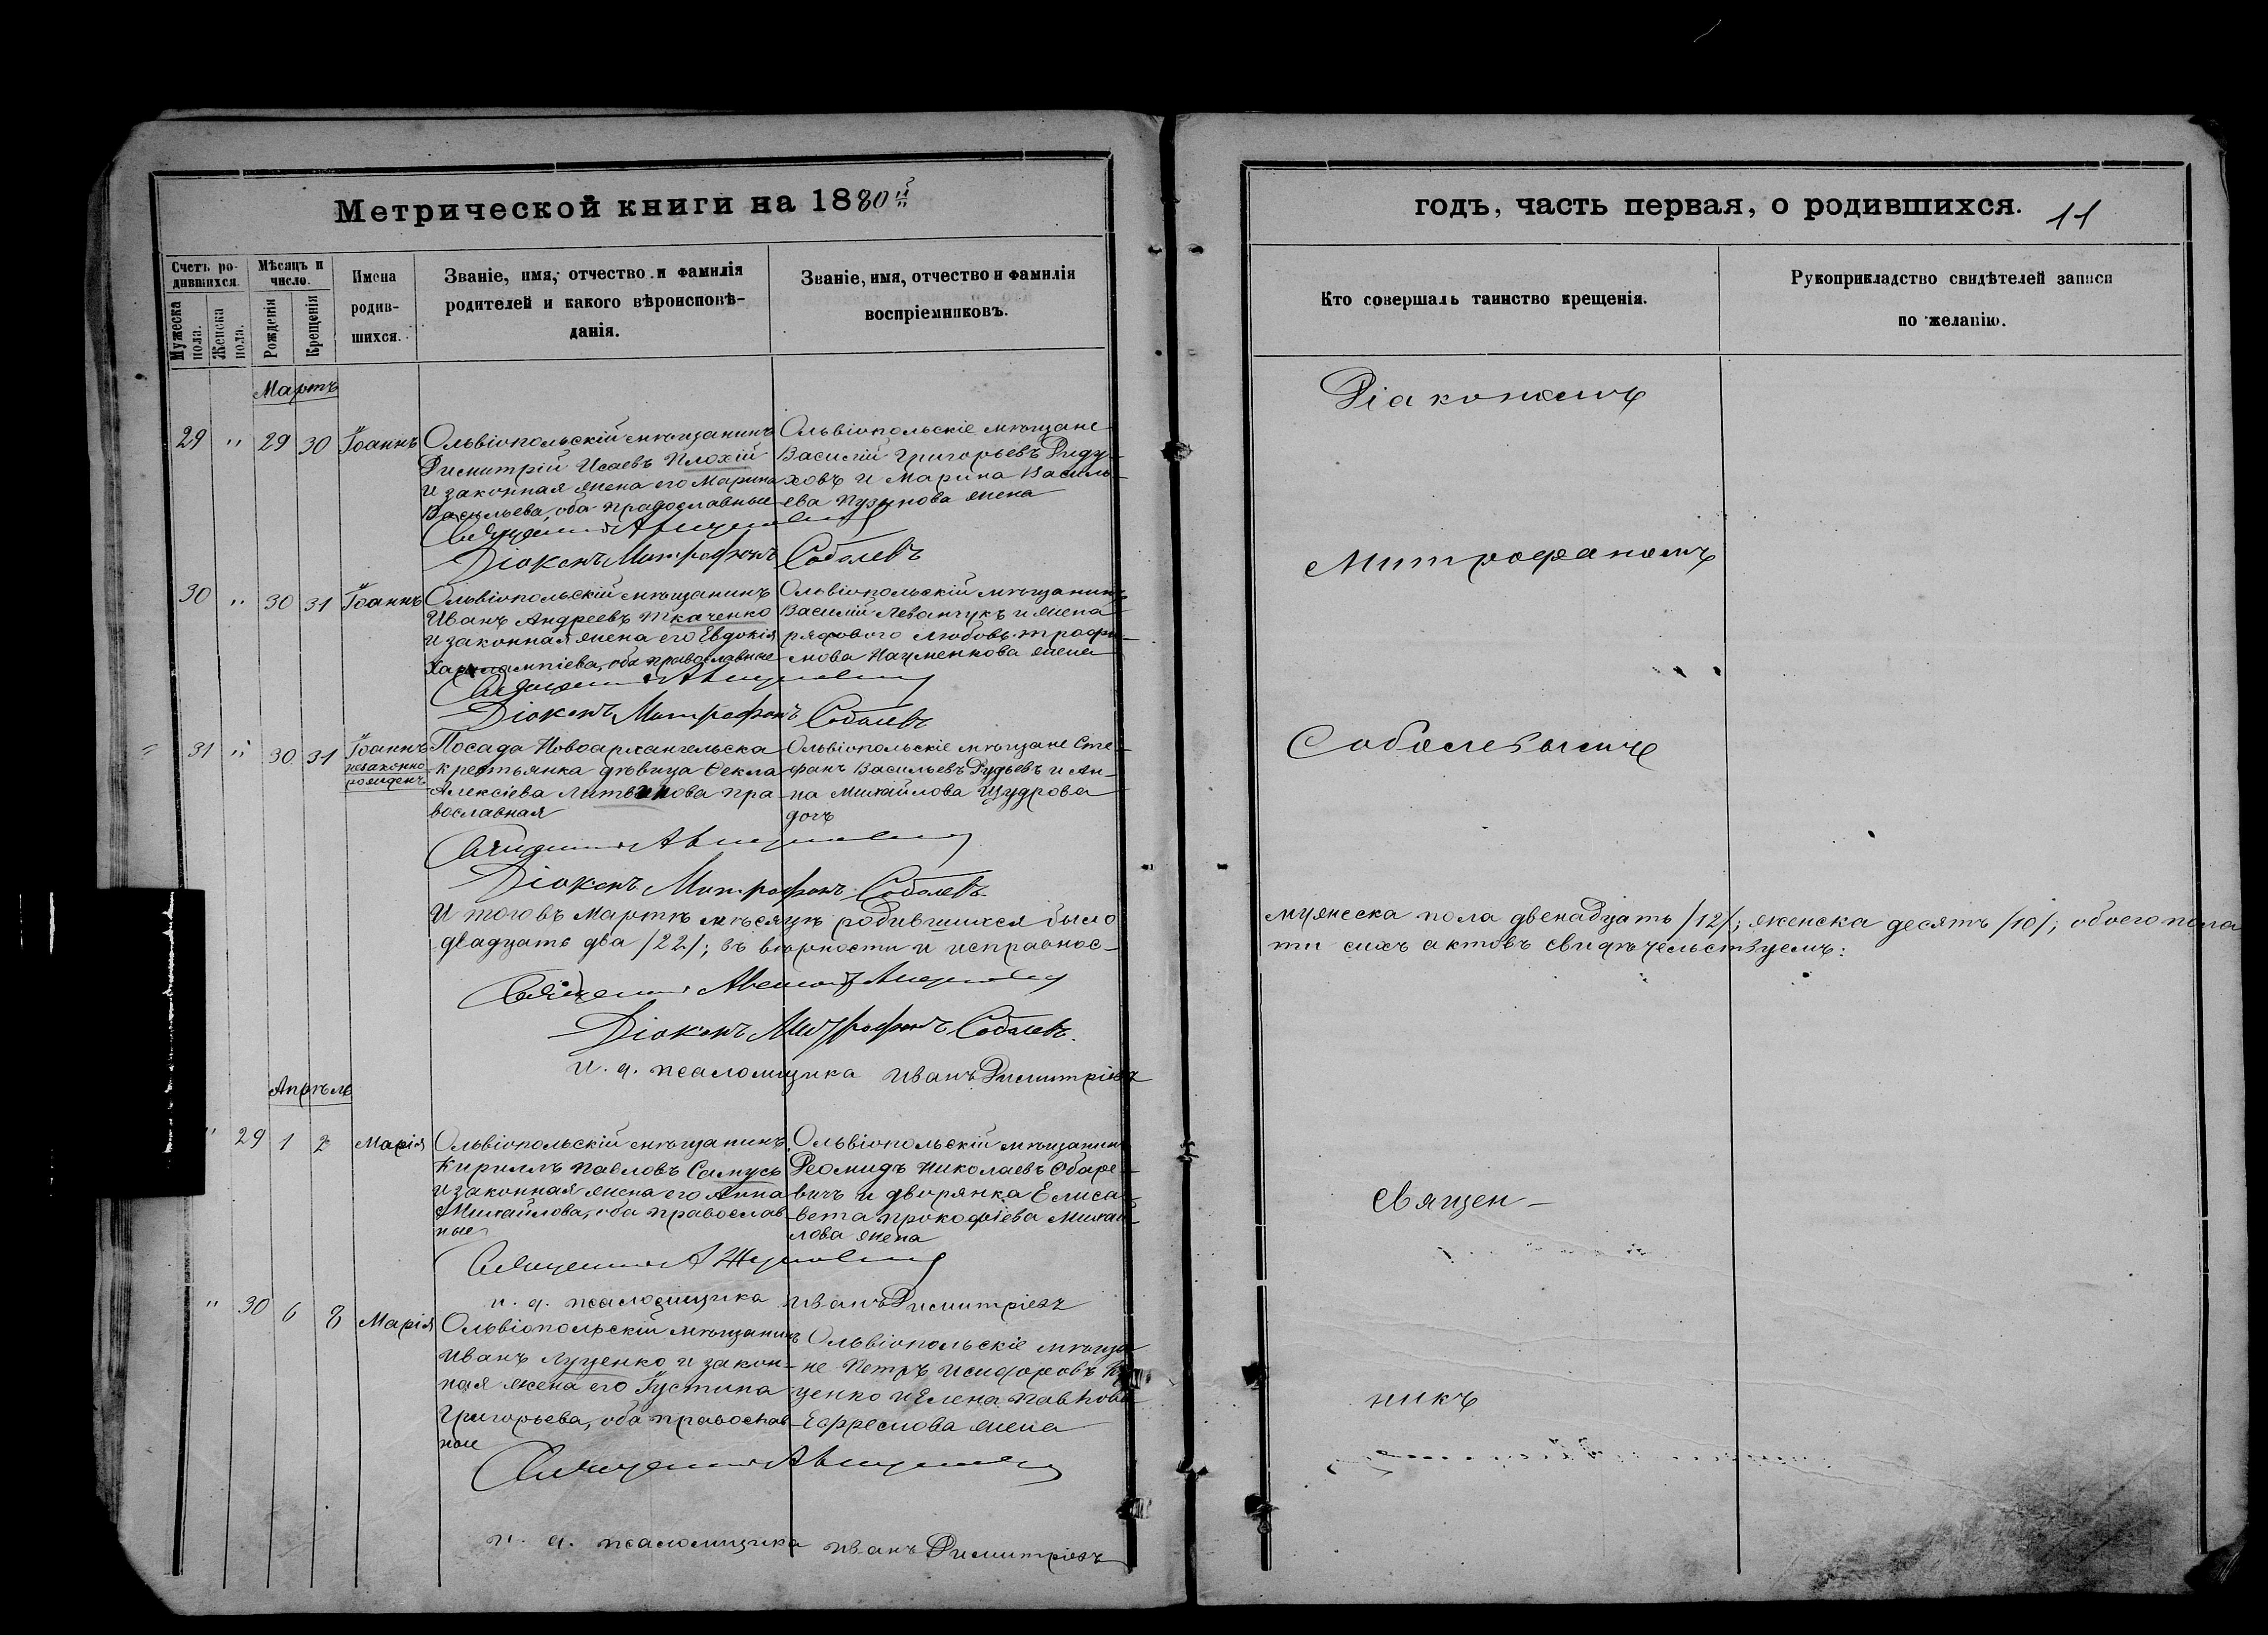 Метрической книги на 1880й
годъ, часть первая, о родившихся. 11
Счетъ ро-
дившихся.
Мужеска пола.
Женска пола.
Мѣсяцъ и
число.
Рожденія
Крещенія
Имена
родив-
шихся.
Званіе, имя, отчество и фамилія
родителей и какого вѣроисповѣ-
данія.
Званіе, имя, отчество и фамилія
воспріемниковъ.
Кто совершалъ таинство крещенія.
Рукоприкладство свидѣтелей записи
по желанію.
Мартъ
29 " 29 30 Іоаннъ
Ольвіопольскій мѣщанинъ
Димитрій Исаевъ Плохій
и законная жена его Марина
Васильева, оба православные
Ольвіопольскіе мѣщане
Василій Григорьевъ Диду-
ховъ и Марина Василь-
ева Пузынова жена
Священникъ
Діаконъ Митрофанъ Соболевъ
30 " 30 31 Іоаннъ
Ольвіопольскій мѣщанинъ
Иванъ Андреевъ Ткаченко
и законная жена его Евдокія
Харлампіева, оба православные
Ольвіопольскій мѣщанинъ
Василій Леванчукъ и жена
рядового Любовь Трофи-
мова Науменкова жена
Священникъ
Діаконъ Митрофанъ Соболевъ
31 " 30 31 Іоаннъ
незаконно
рожденъ
Посада Новоархангельска
крестьянка дѣвица Ѳекла
Алексіева Литвинова пра-
вославная
Ольвіопольскіе мѣщане Сте-
фанъ Васильевъ Дудьевъ и Ан-
на Михайлова Щудрова
дочь
Священникъ
Діаконъ Митрофанъ Соболевъ
Діакономъ
Митрофаномъ
Соболевымъ
Итого въ Мартѣ мѣсяцѣ родившихся было мужеска пола двенадцать /12/; женска десять /10/; обоего пола
двадцать два /22/; въ вѣрности и исправнос- ти сихъ актовъ свидѣтельствуемъ:
Священникъ
Діаконъ Митрофанъ Соболевъ.
и. д. псаломщика Иванъ Димитріевъ
Апрѣль
" 29 1 2 Марія
Ольвіопольскій мѣщанинъ
Кириллъ Павловъ Самусь
и законная жена его Анна
Михайлова, оба православ-
ные
Ольвіопольскій мѣщанинъ
Деомидъ Николаевъ Обаре-
вичъ и дворянка Елиса-
вета Прокофіева Михай-
лова жена
Священникъ
и. д. псаломщика Иванъ Димитріевъ
" 30 6 8 Марія
Ольвіопольскій мѣщанинъ
Иванъ Луценко и закон-
ная жена его Іустина
Григорьева, оба православ-
ные
Ольвіопольскіе мѣща-
не Петръ Исидоровъ
ценко и Елена Павлова
Ефремова жена
Священникъ
и. д. псаломщика Иванъ Димитріевъ
Священ-
никъ